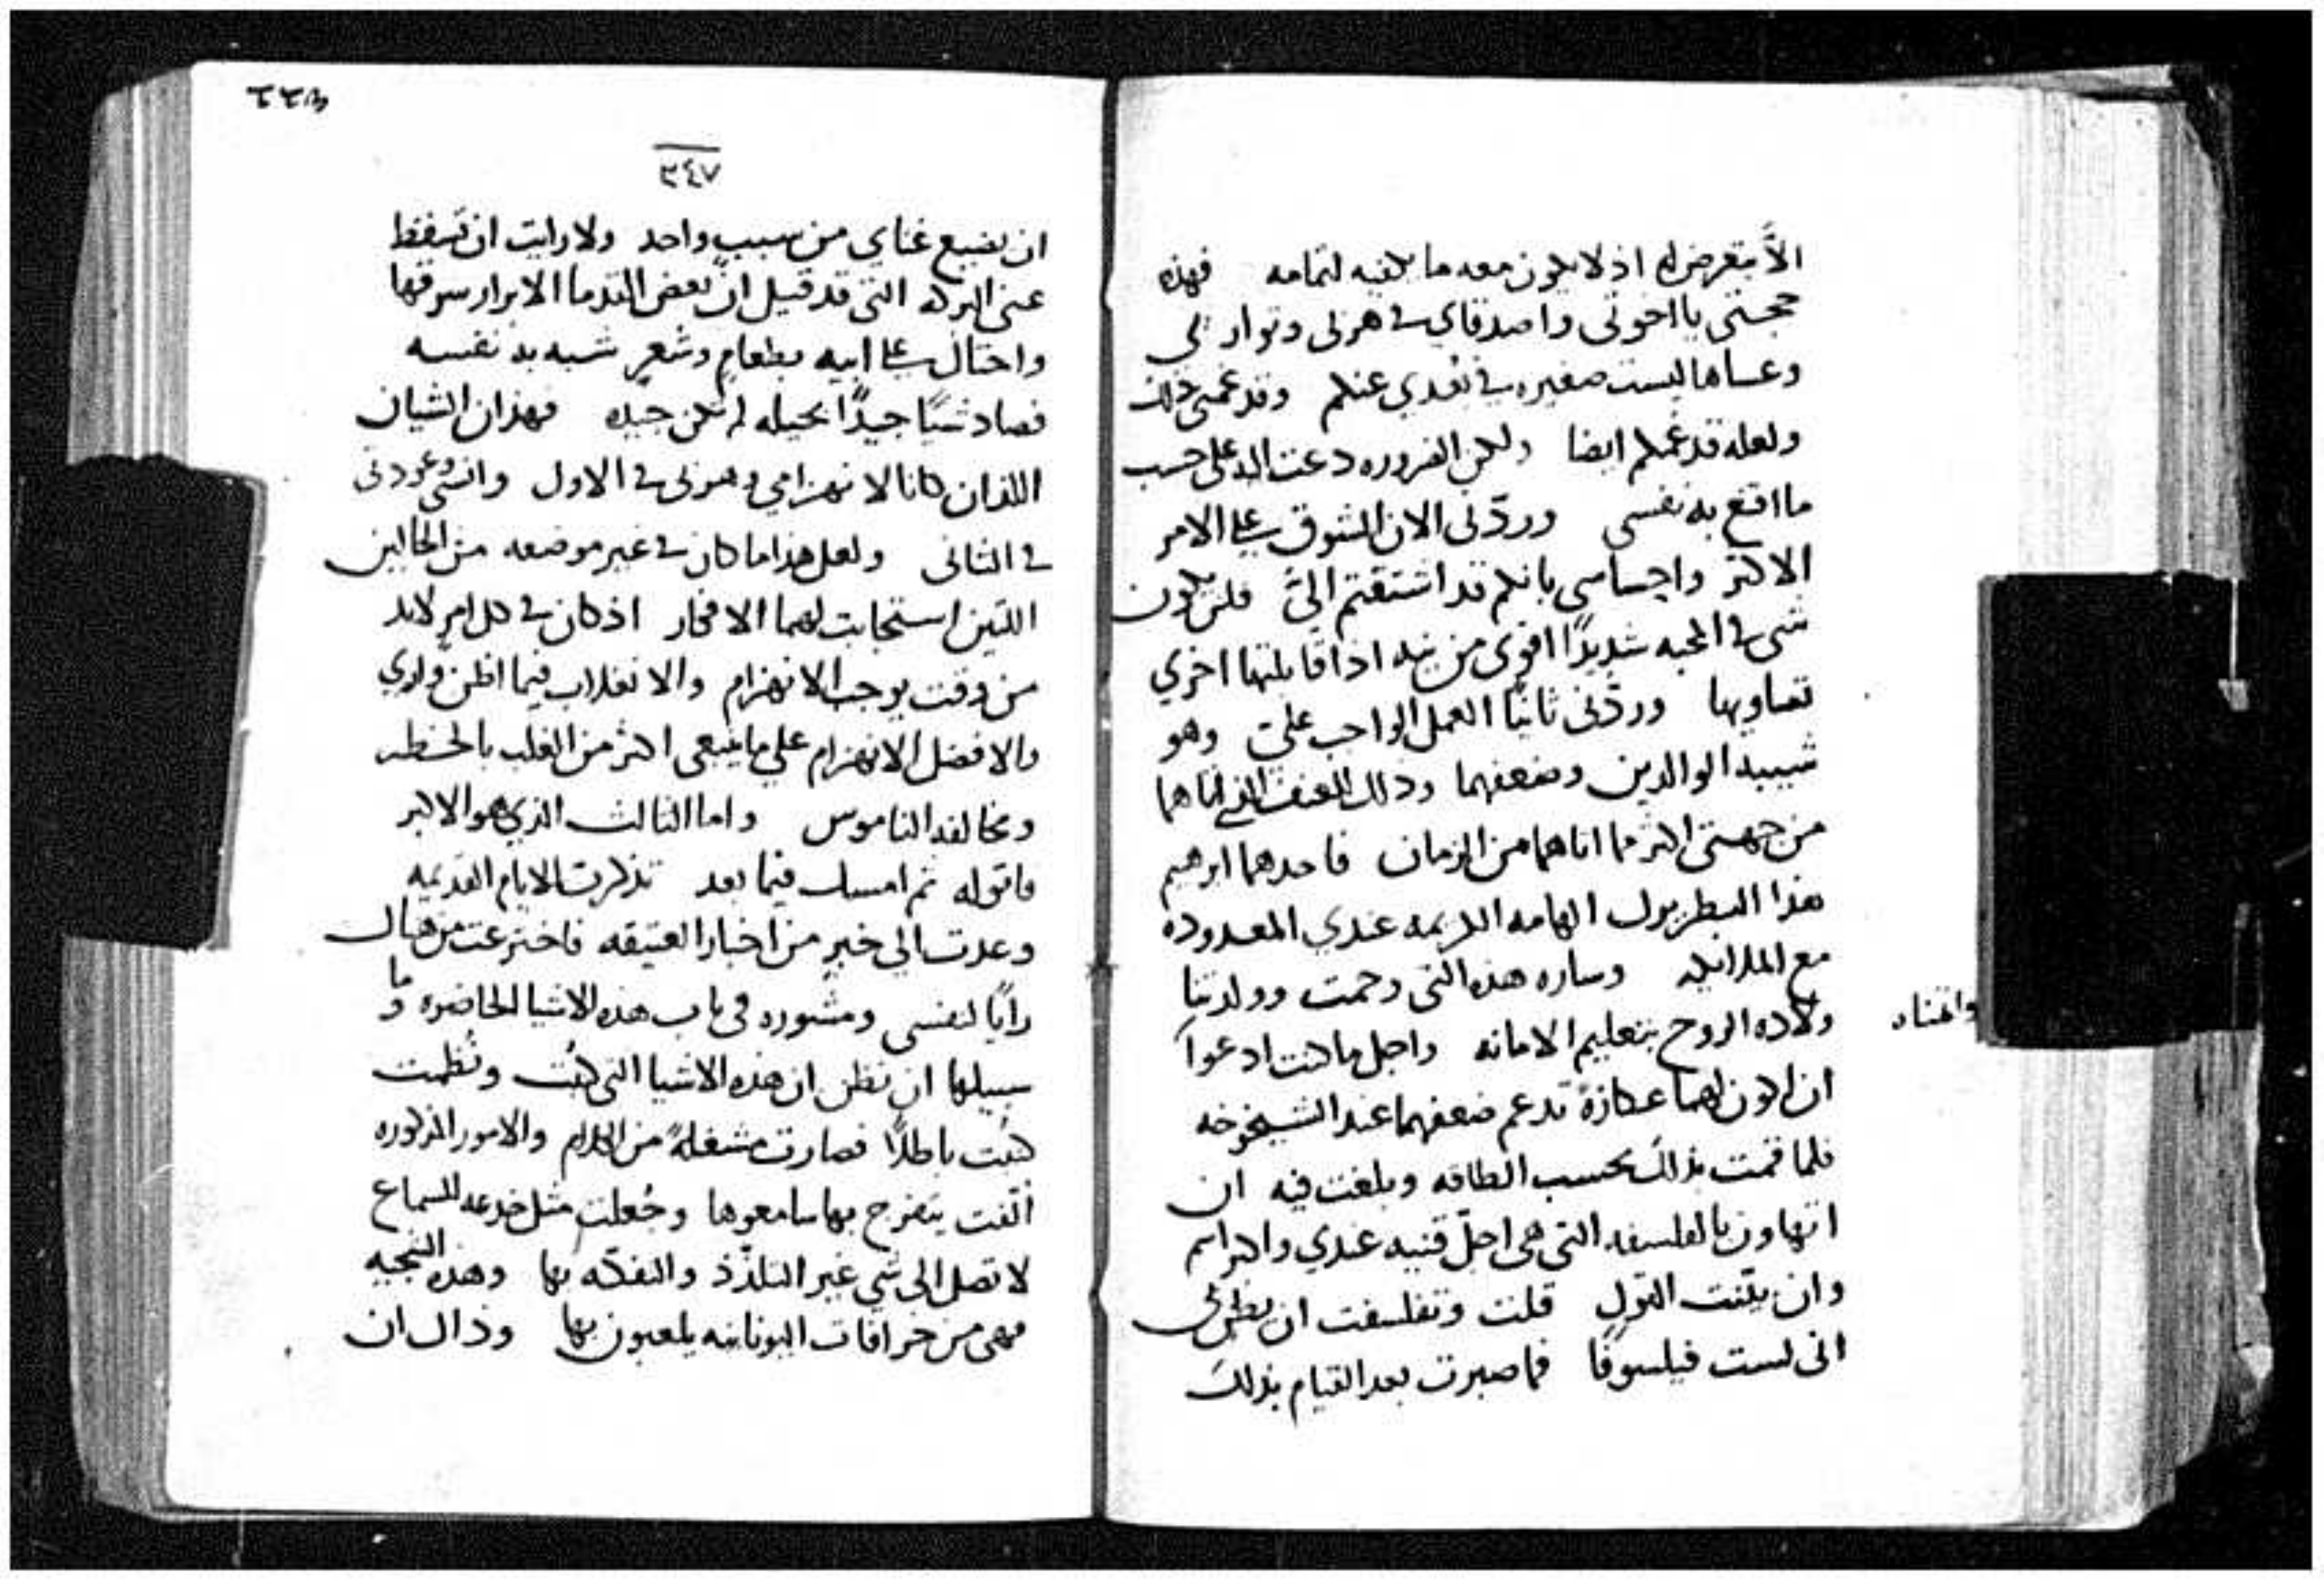 الاَّ يتعرض له اذ لا يكون معه ما يكفيه لتمامه فهذه
حجتي يا اخوتي واصدقاي في هربي وتواري
وعساها ليست صغيره في بُعدي عنكم وقد غمني ذلك
ولعله قد غمكم ايضا ولكن الضروره دعت اليه على حسب
ما اقنع به نفسي وردّني الان الشوق على الامر
الاكثر واحساسي بانكم قد اشتقتم اليَّ فلن يكون
شي في المحبه شديدًا اقوى من نيه اذا قابلتها اخري
تساويها وردّني ثانيًا العمل الواجب عليَّ وهو
شيبه الوالدين وضعفهما وذلك الضعف الذي اتاهما
من جهتي اكثر مما اتاهما من الزمان فاحدهما ابرهيم
هذا البطريرك الهامه الكريمه عندي المعدوده
مع الملايكه وساره هذه التي رحمت وولدتنا
ولاده الروح بتعليم الامانه واجل ما كنت ادعوا
واتمناه
ان اكون لهما عكازة تدعم ضعفهما عند الشيخوخه
فلما قمت بذلك بحسب الطاقه وبلغت فيه ان
اتهاون بالفلسفه التي هي اجلّ قنيه عندي واكبر اسم
وان بيّنت القول قلت وتفلسفت ان يظن بي
اني لست فيلسوفًا فما صبرت بعد القيام بذلك
٢٤٧
ان يضيع عناي من سبب واحد ولا رايت ان تسقط
عني البركه التي قد قيل انّ بعض القدما الابرار سرقها
واحتال على ابيه بطعامٍ وشعرٍ شبه به نفسه
فصاد شيًا جيدًا بحيله لم تكن جيده فهذان الشيان
اللذان كانا لانهزامي وهربي في الاول وانثني وعودتي
في الثاني ولعل هذا ما كان في غير موضعه من الحالين
اللتين استجابت لهما الافكار اذ كان في كل امرٍ لابد
من وقت يوجب الانهزام والانغلاب فيما اظن واري
والافضل الانهزام علي ما ينبغي اكثر من الغلب بالخطر
ومخالفه الناموس واما الثالث الذي هو الاكبر
فاقوله ثم امسك فيما بعد تذكرت الايام القديمه
وعدت الي خبرٍ من اخبار العتيقه فاخترعت من هناك
رايًا لنفسي ومشوره في باب هذه الاشيا الحاضره وما
سبيلها ان نظن ان هذه الاشيا التي كتبت ونُظمت
كتبت باطلًا فصارت مشغلةً من الكلام والامور المذكوره
الّفت يتفرج بها سامعوها وجُعلت مثل خدعه للسماع
لا تصل الي شي غير التلذّذ والتفكّه بها وهذه السجيه
فهي من خرافات اليونانيه يلعبون بها وذاك ان